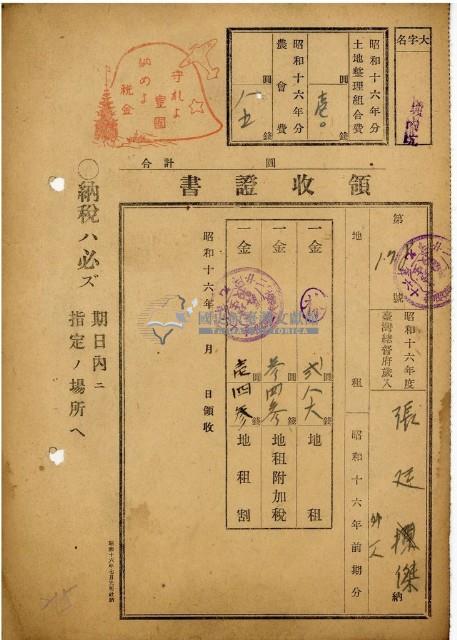 大字名
昭和十六年分
土地整理組合費
圓
錢
昭和十六年分
農會費
圓
錢
八五
守れよ
豊國
納めよ
税金
合計
圓
領收證書
第
號
地租
昭和十六年度
臺灣總督府歲入
昭和十六年前期分
張廷
傑
外一人
納
一金
圓
錢
貳八六
地租
一金
圓
錢
參四參
地租附加税
一金
圓
錢
壱四參
地租割
昭和十六年
月
日領收
國史館臺灣文獻館
TAIWAN HISTORICA
◯納税ハ必ズ
期日內ニ
指定ノ場所ヘ